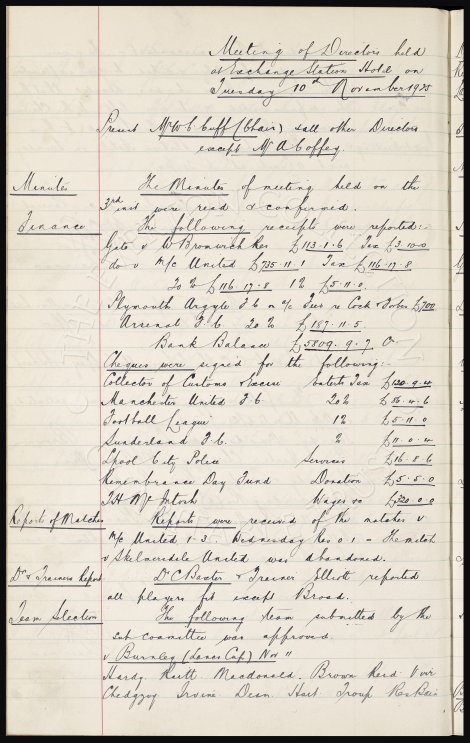 Meeting of Directors held
at Exchange Station Hotel on
Tuesday 10th November 1925
Present Mr W C Cuff (Chair) & all other Directors
except Mr A Coffey
Minutes
The Minutes of meeting held on the
3rd inst were read & confirmed.
Finance
The following receipts were reported:-
Gate v W Bromwich Res £113.1.6 Tax £3.10.0
do v M/c United £735.11.1 Tax £116.17.8
20% £116.17.8 1% £5.11.0
Plymouth Argyle F.C. on a/c Fees re Cock & Forbes £700
Arsenal F.C. 20% £187.11.5
Bank Balance £5809.9.7
Cheques were signed for the following:-
Collector of Customs & Excise Entert Tax £120.9.4
Manchester United F.C. 20% £116.4.6
Football League 1% £5.11.0
Sunderland F.C. % £11.0.4
Lpool City Police Services £16.8.6
Remembrance Day Fund Donation £5.5.0
T.H. McIntosh Wages &c £320.0.0
Reports of Matches
Reports were received of the matches v
M/c United 1-3 Wednesday Res 0.1 - The match
v Skelmersdale United was abandoned.
Dr & Trainers Report
Dr C Baxter & Trainer Elliott reported
all players fit except Broad.
Team Selection
The following team submitted by the
sub committee was approved.
v Burnley (Lancs Cup) Nov 11
Hardy. Raitt Macdonald. Brown Reid Virr
Chedgzoy Irvine Dean Hart Troup Res Bain